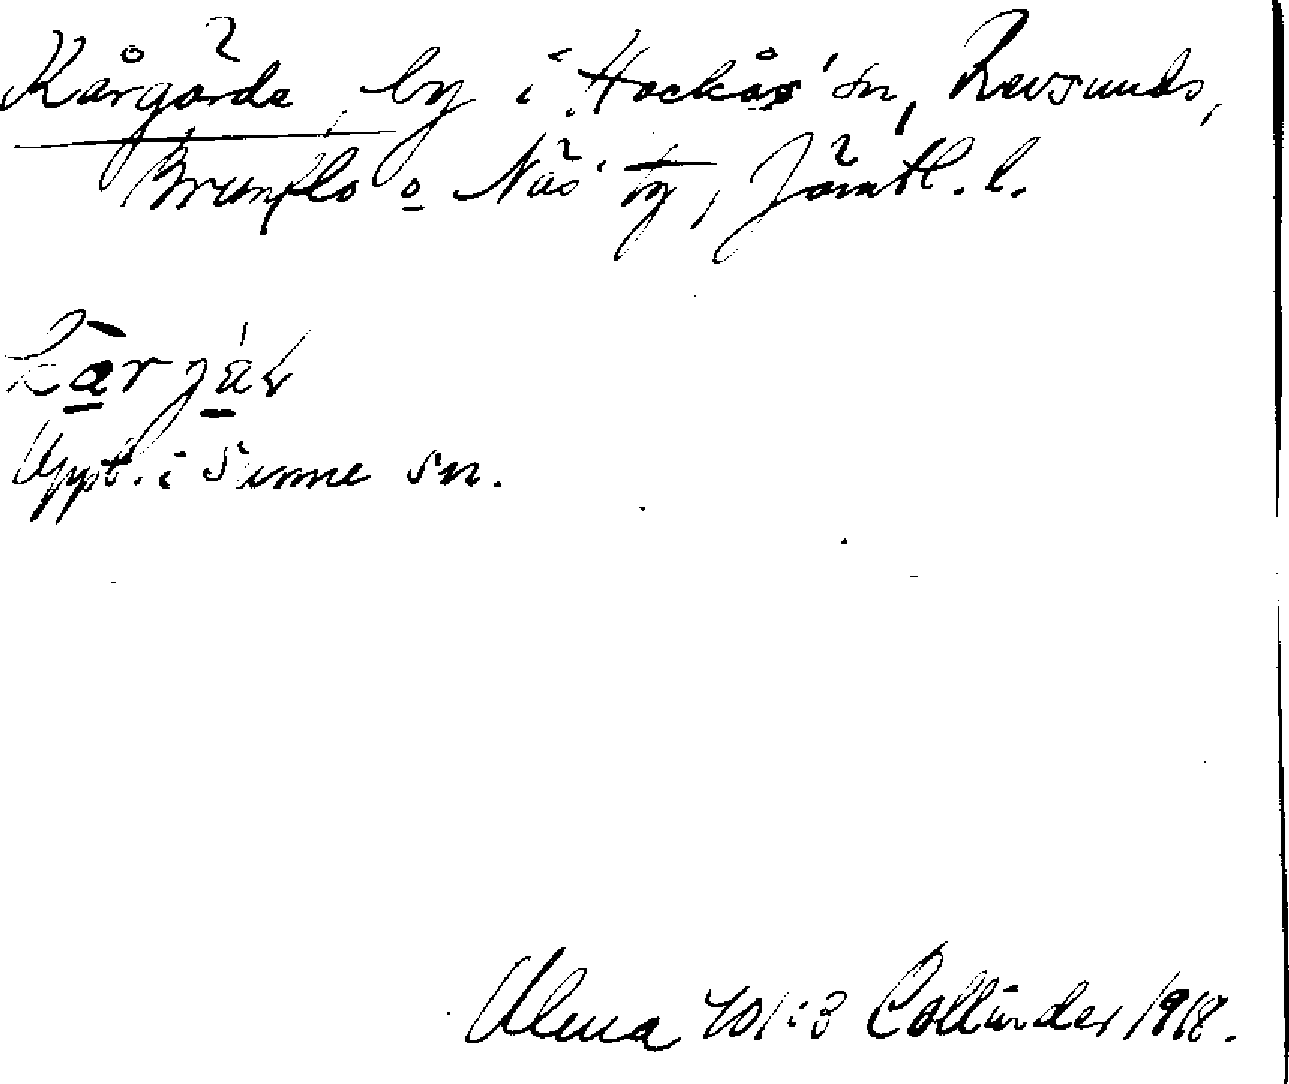 Kårgärde, by i Hackås' sn, Revsunds,
Brunflo o Näs' tg, Jämtl. l.
Uppt. i Sunne sn.
Ulma 401:3 Collinder 1918.